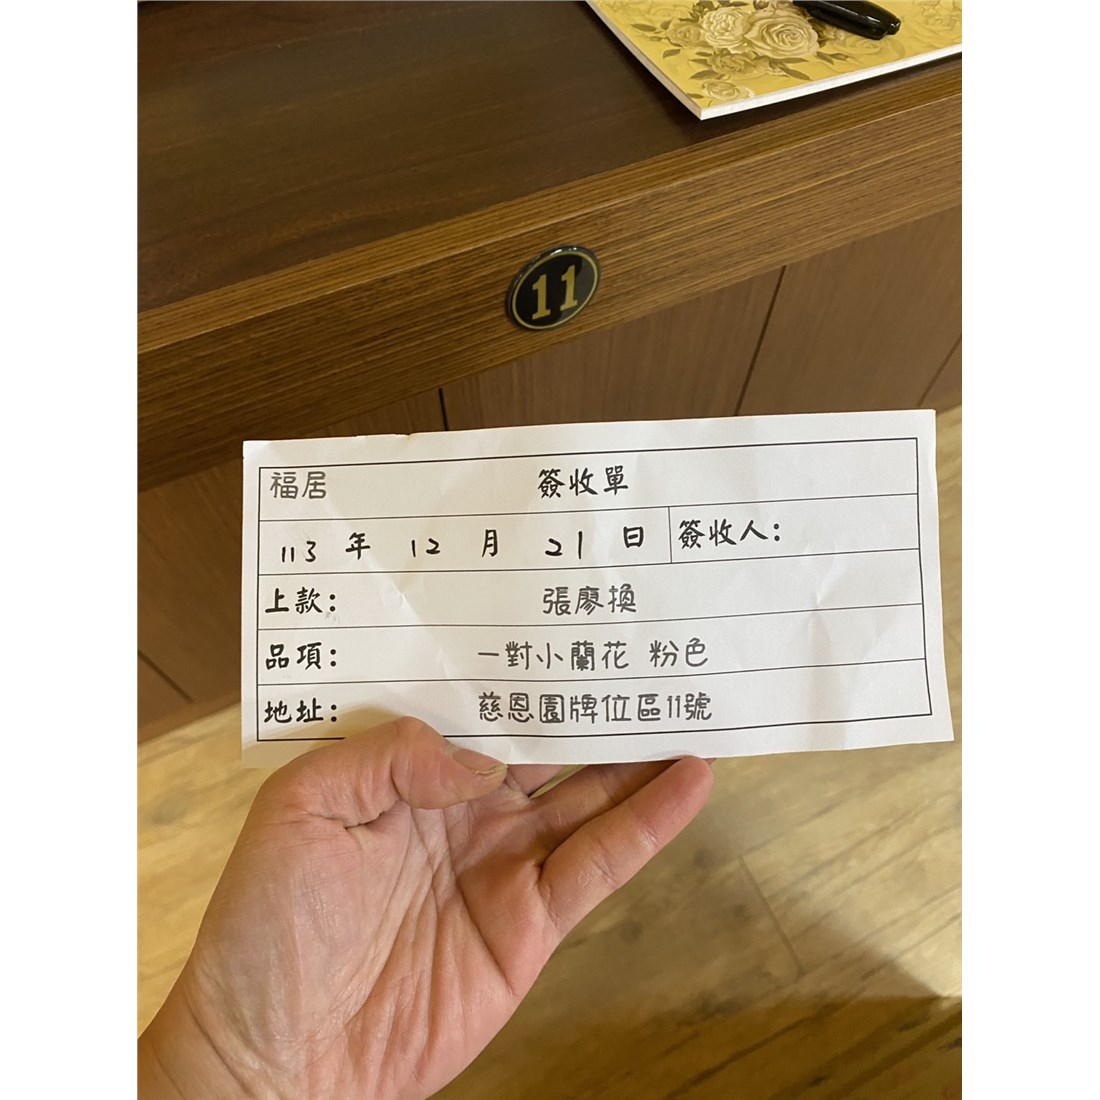 11
福居 簽收單
113 年 12 月 21 日 簽收人:
上款: 張廖換
品項: 一對小蘭花 粉色
地址: 慈恩園牌位區11號